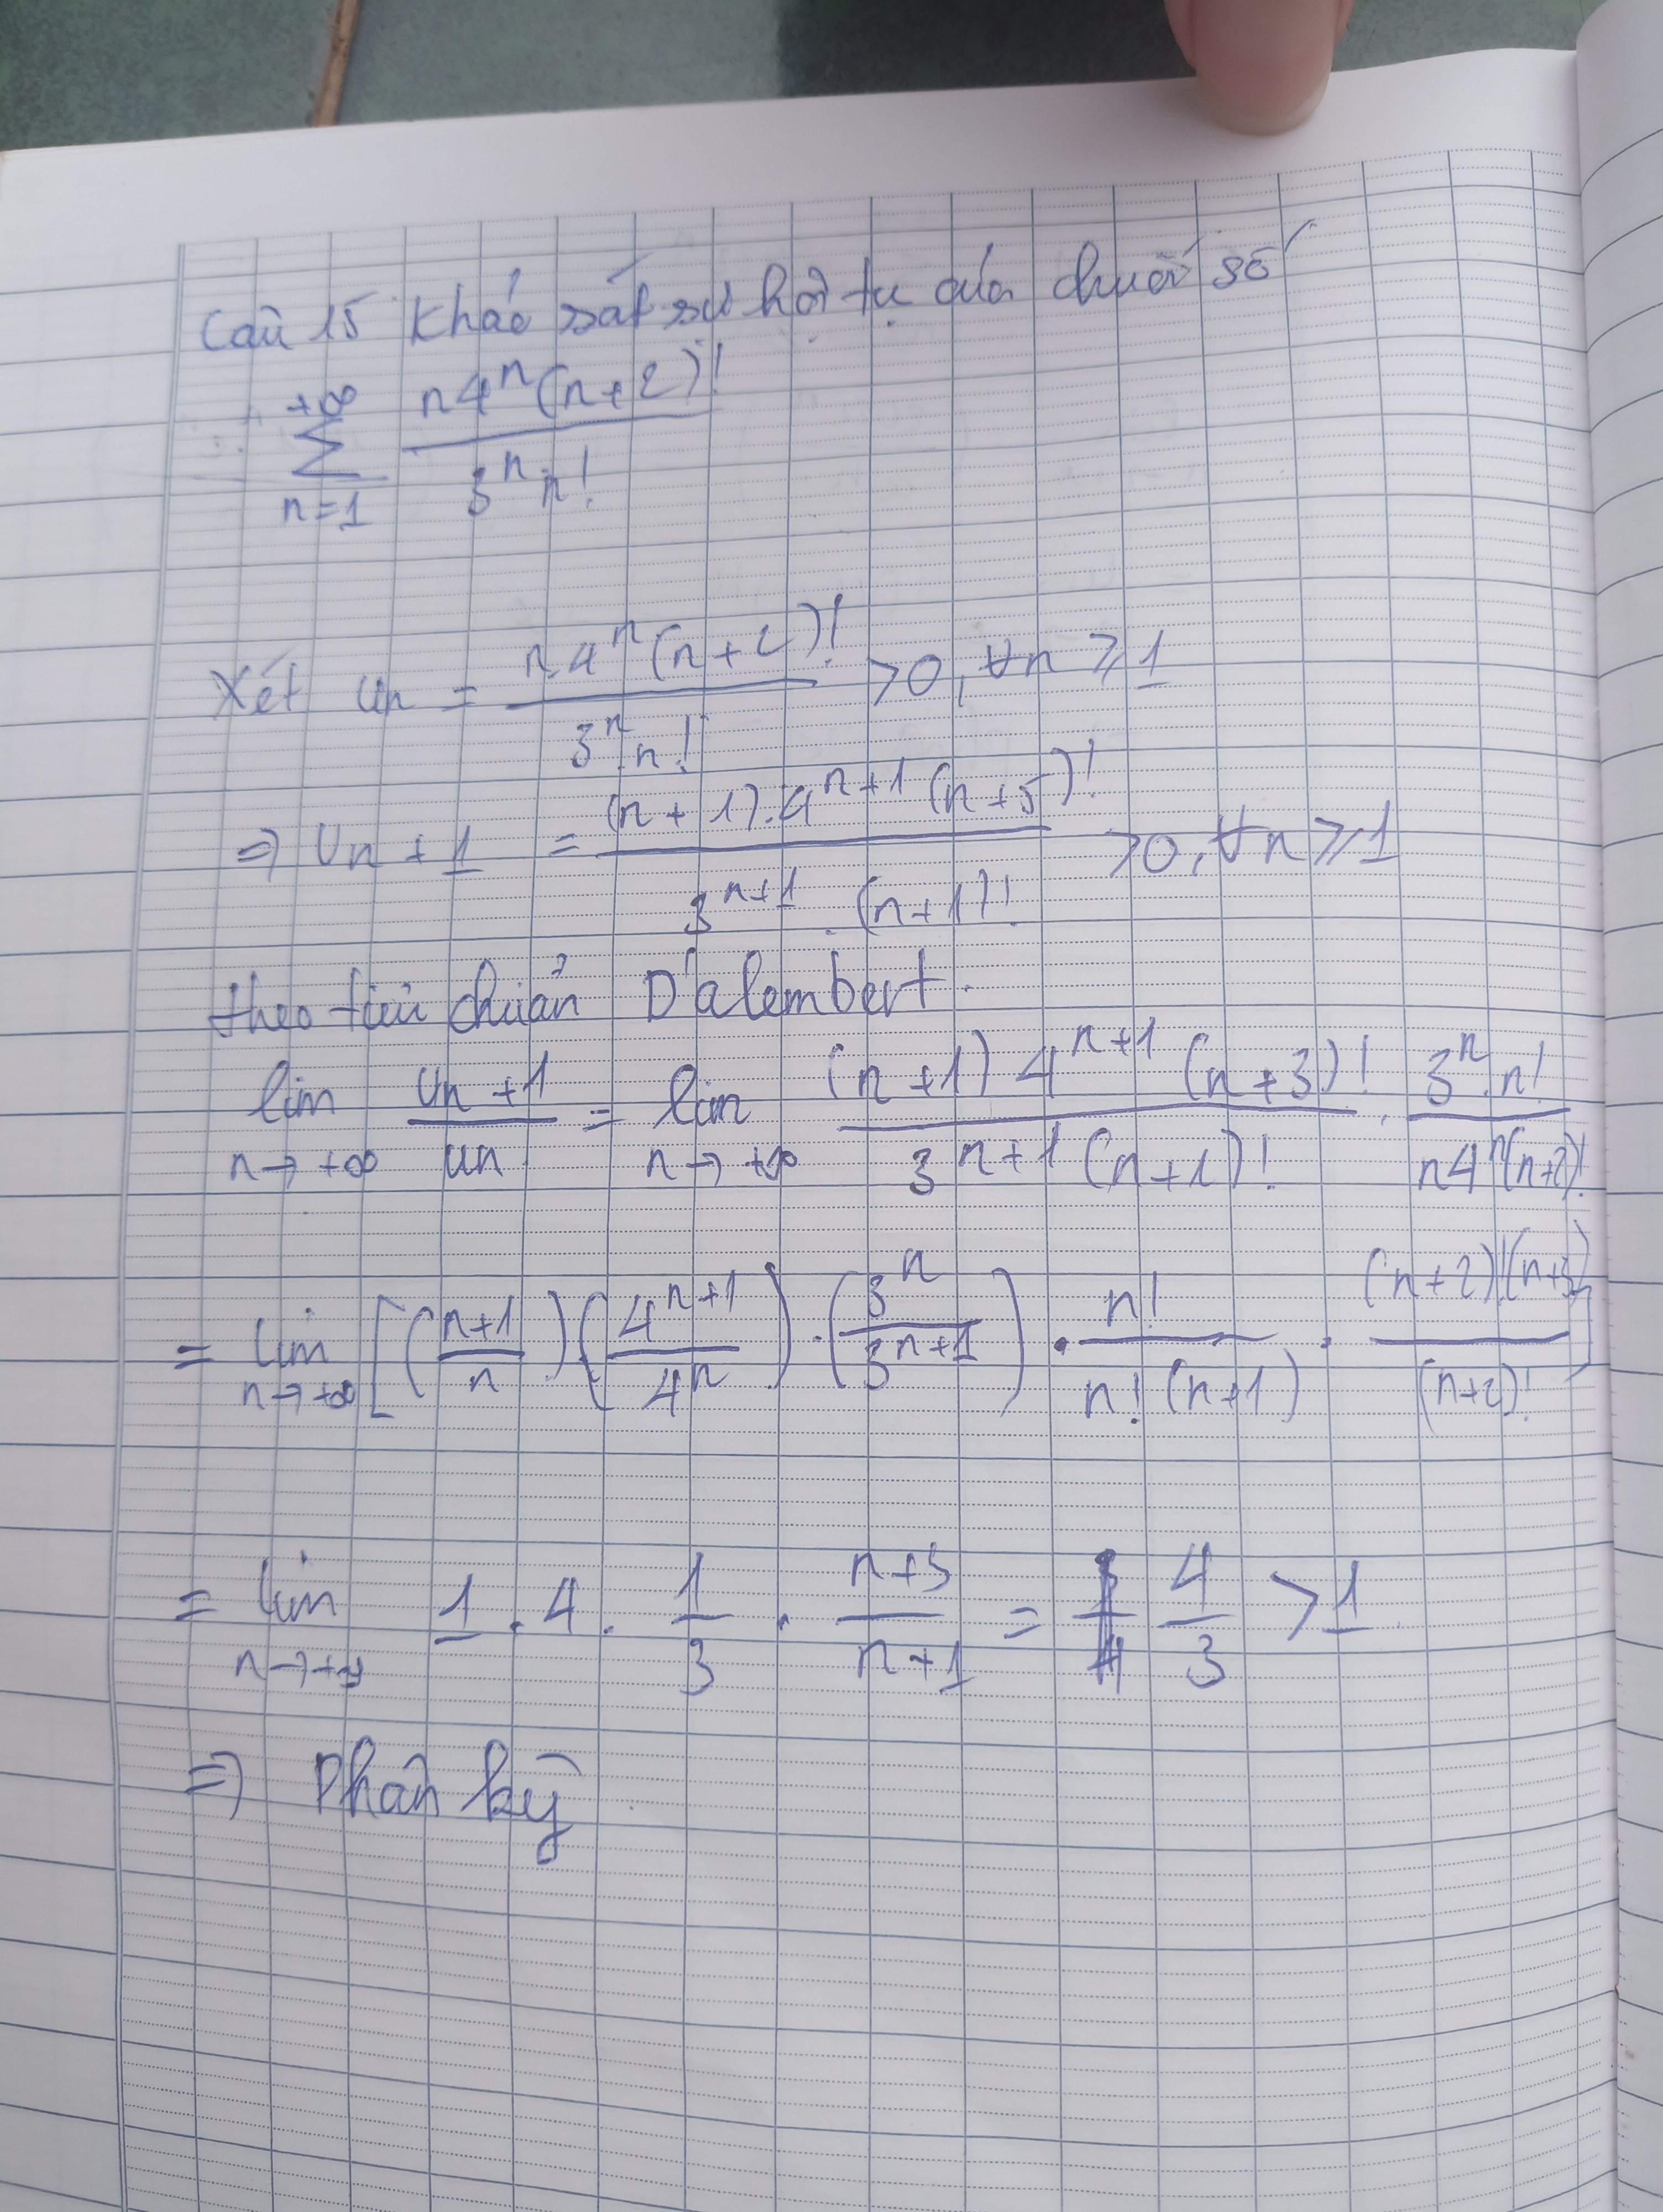 Câu 15 Khảo sát sự hội tụ của chuỗi số
+∞ ∑ n=1 n4^n(n+2)! / 3^n.n!
Xét un = n.4^n(n+2)! / 3^n.n! >0, ∀n ⩾ 1
⇒ Un+1 = (n+1).4^(n+1)(n+5)! / 3^(n+1).(n+1)! >0, ∀n ⩾ 1
theo tiêu chuẩn D'alembert.
lim n→+∞ un+1 / un = lim n→+∞ (n+1)4^(n+1)(n+3)! / 3^(n+1)(n+1)! . 3^n.n! / n4^n(n+2)!
= lim n→+∞ [((n+1) / n).(4^(n+1) / 4^n).(3^n / 3^(n+1)).n! / n!(n+1) . (n+2)!(n+3) / (n+2)!]
= lim n→+∞ 1.4. 1/3 . n+3 / n+1 = 4/3 >1
⇒ Phân kỳ